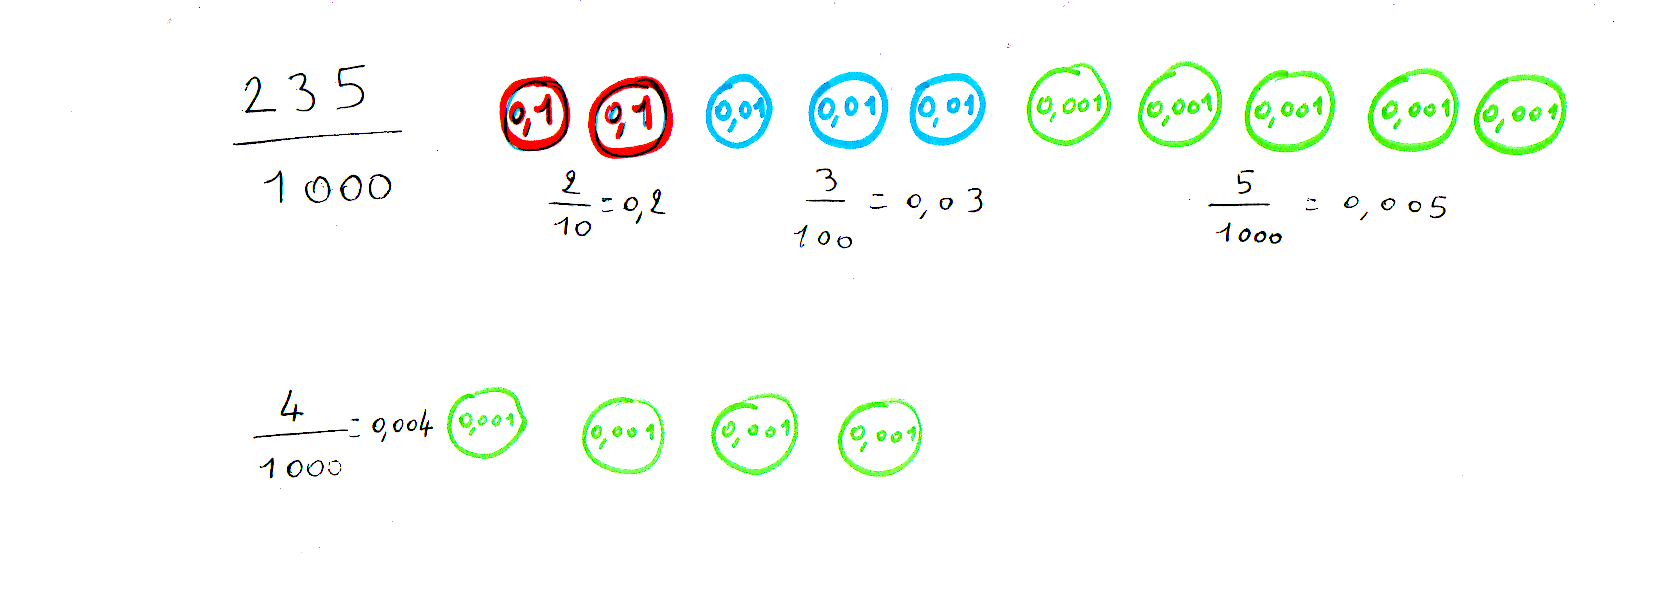 235
1000
0,1 0,1 0,01 0,01 0,01 0,001 0,001 0,001 0,001 0,001
2/10 = 0,2 3/100 = 0,03 5/1000 = 0,005
4/1000 = 0,004 0,001 0,001 0,001 0,001